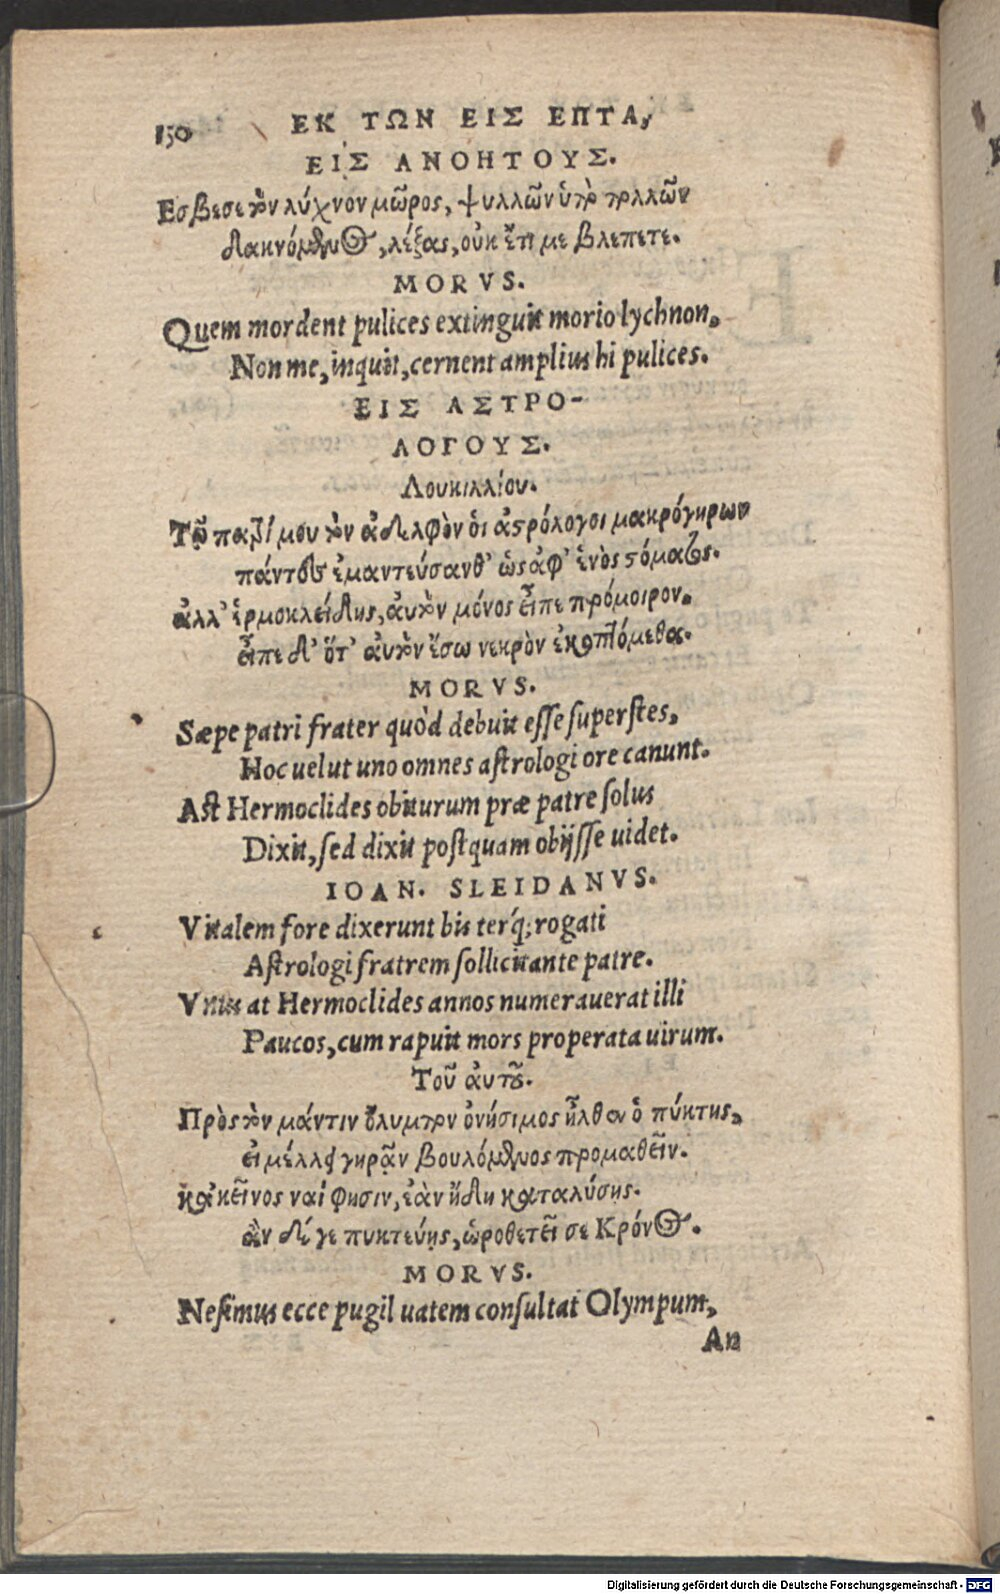 150 ΕΚ ΤΩΝ ΕΙΣ ΕΠΤΑ,
ΕΙΣ ΑΝΟΗΤΟΥΣ.
Εσβεσε τὸν λύχνον μῶρος, ψυλλῶν ὑπὸ πολλῶν
δακνόμενος, λέξας, οὐκ ἔτι με βλεπετε.
MORVS.
Quem mordent pulices extinguit morio lychnon,
Non me, inquit, cernent amplius hi pulices.
ΕΙΣ ΑΣΤΡΟ-
ΛΟΓΟΥΣ.
Λουκιλλίου.
Τῷ πατρί μου τὸν ἀδελφὸν ὁι ἀστρόλογοι μακρόγηρων
πάντες ἐμαντεύσανθ' ὡς ἀφ' ἑνὸς στόματος.
ἀλλ' ἑρμοκλείδης, ἀυτὸν μόνος εἶπε πρόμοιρον.
εἶπε δ' ὅτ' ἀυτὸν ἔσω νεκρὸν ἐκοπτόμεθα.
MORVS.
Sæpe patri frater quòd debuit esse superstes,
Hoc uelut uno omnes astrologi ore canunt.
Ast Hermoclides obiturum præ patre solus
Dixit, sed dixit postquam obijsse uidet.
IOAN. SLEIDANVS.
Vitalem fore dixerunt bis terq́; rogati
Astrologi fratrem sollicitante patre.
Vnus at Hermoclides annos numerauerat illi
Paucos, cum rapuit mors properata uirum.
Τοῦ ἀυτοῦ.
Πρὸς τὸν μάντιν ὄλυμπον ὀνήσιμος ἦλθεν ὁ πύκτης,
εἰ μέλλει γηρᾷν βουλόμενος προμαθεῖν.
κᾀκεῖνος ναί φησιν, ἐὰν ἤδη καταλύσῃς.
ἂν δέ γε πυκτεύῃς, ὡροθετεῖ σε Κρόνος.
MORVS.
Nesimus ecce pugil uatem consultat Olympum,
An
Digitalisierung gefördert durch die Deutsche Forschungsgemeinschaft - DFG